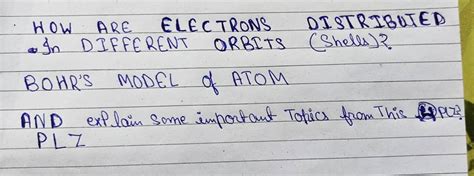 HOW ARE ELECTRONS DISTRIBUTED
In DIFFERENT ORBITS (Shells)?
BOHR'S MODEL of ATOM
AND explain some important Topics from This PLZ?
PLZ